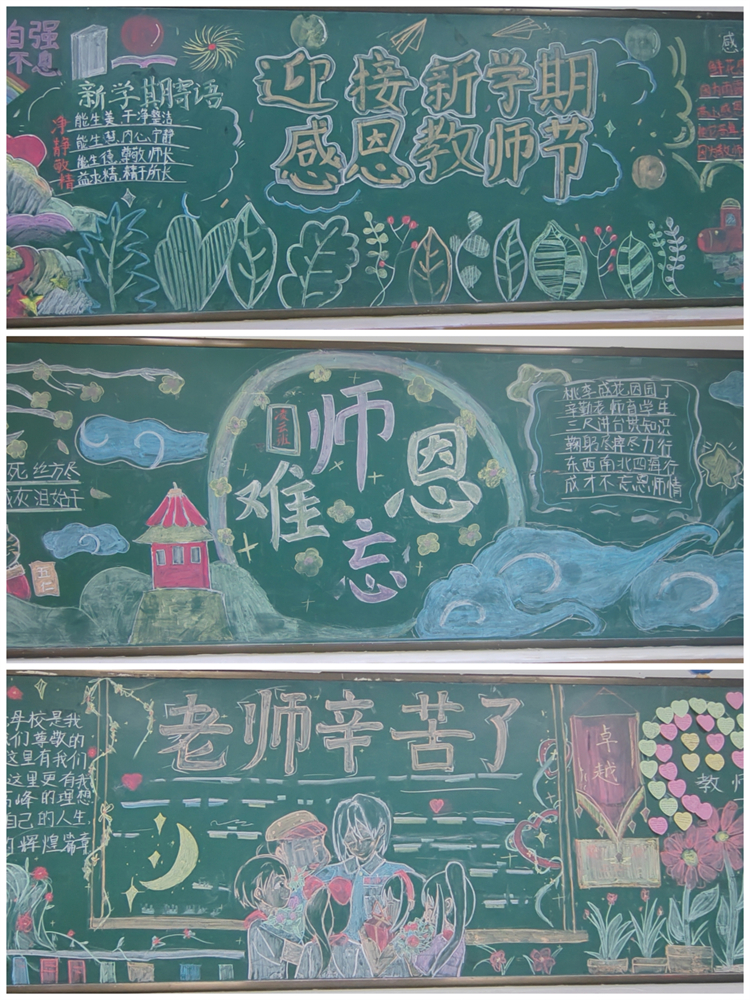 自强
不息
新学期寄语
净静敬精
能生美 干净整洁
能生慧 内心宁静
能生德 尊敬师长
益求精 精于所长
迎接新学期
感恩教师节
感
死丝方尽
灰泪始干
五仁
凌云班
师恩难忘
桃李成花因园丁
辛勤老师育学生
三尺讲台洪知识
鞠躬尽瘁尽力行
东西南北四海行
成才不忘恩师情
学校是我
们尊敬的
这里有我们
这里更有我
高峰的理想
自己的人生
辉煌篇章
老师辛苦了
卓越
教师